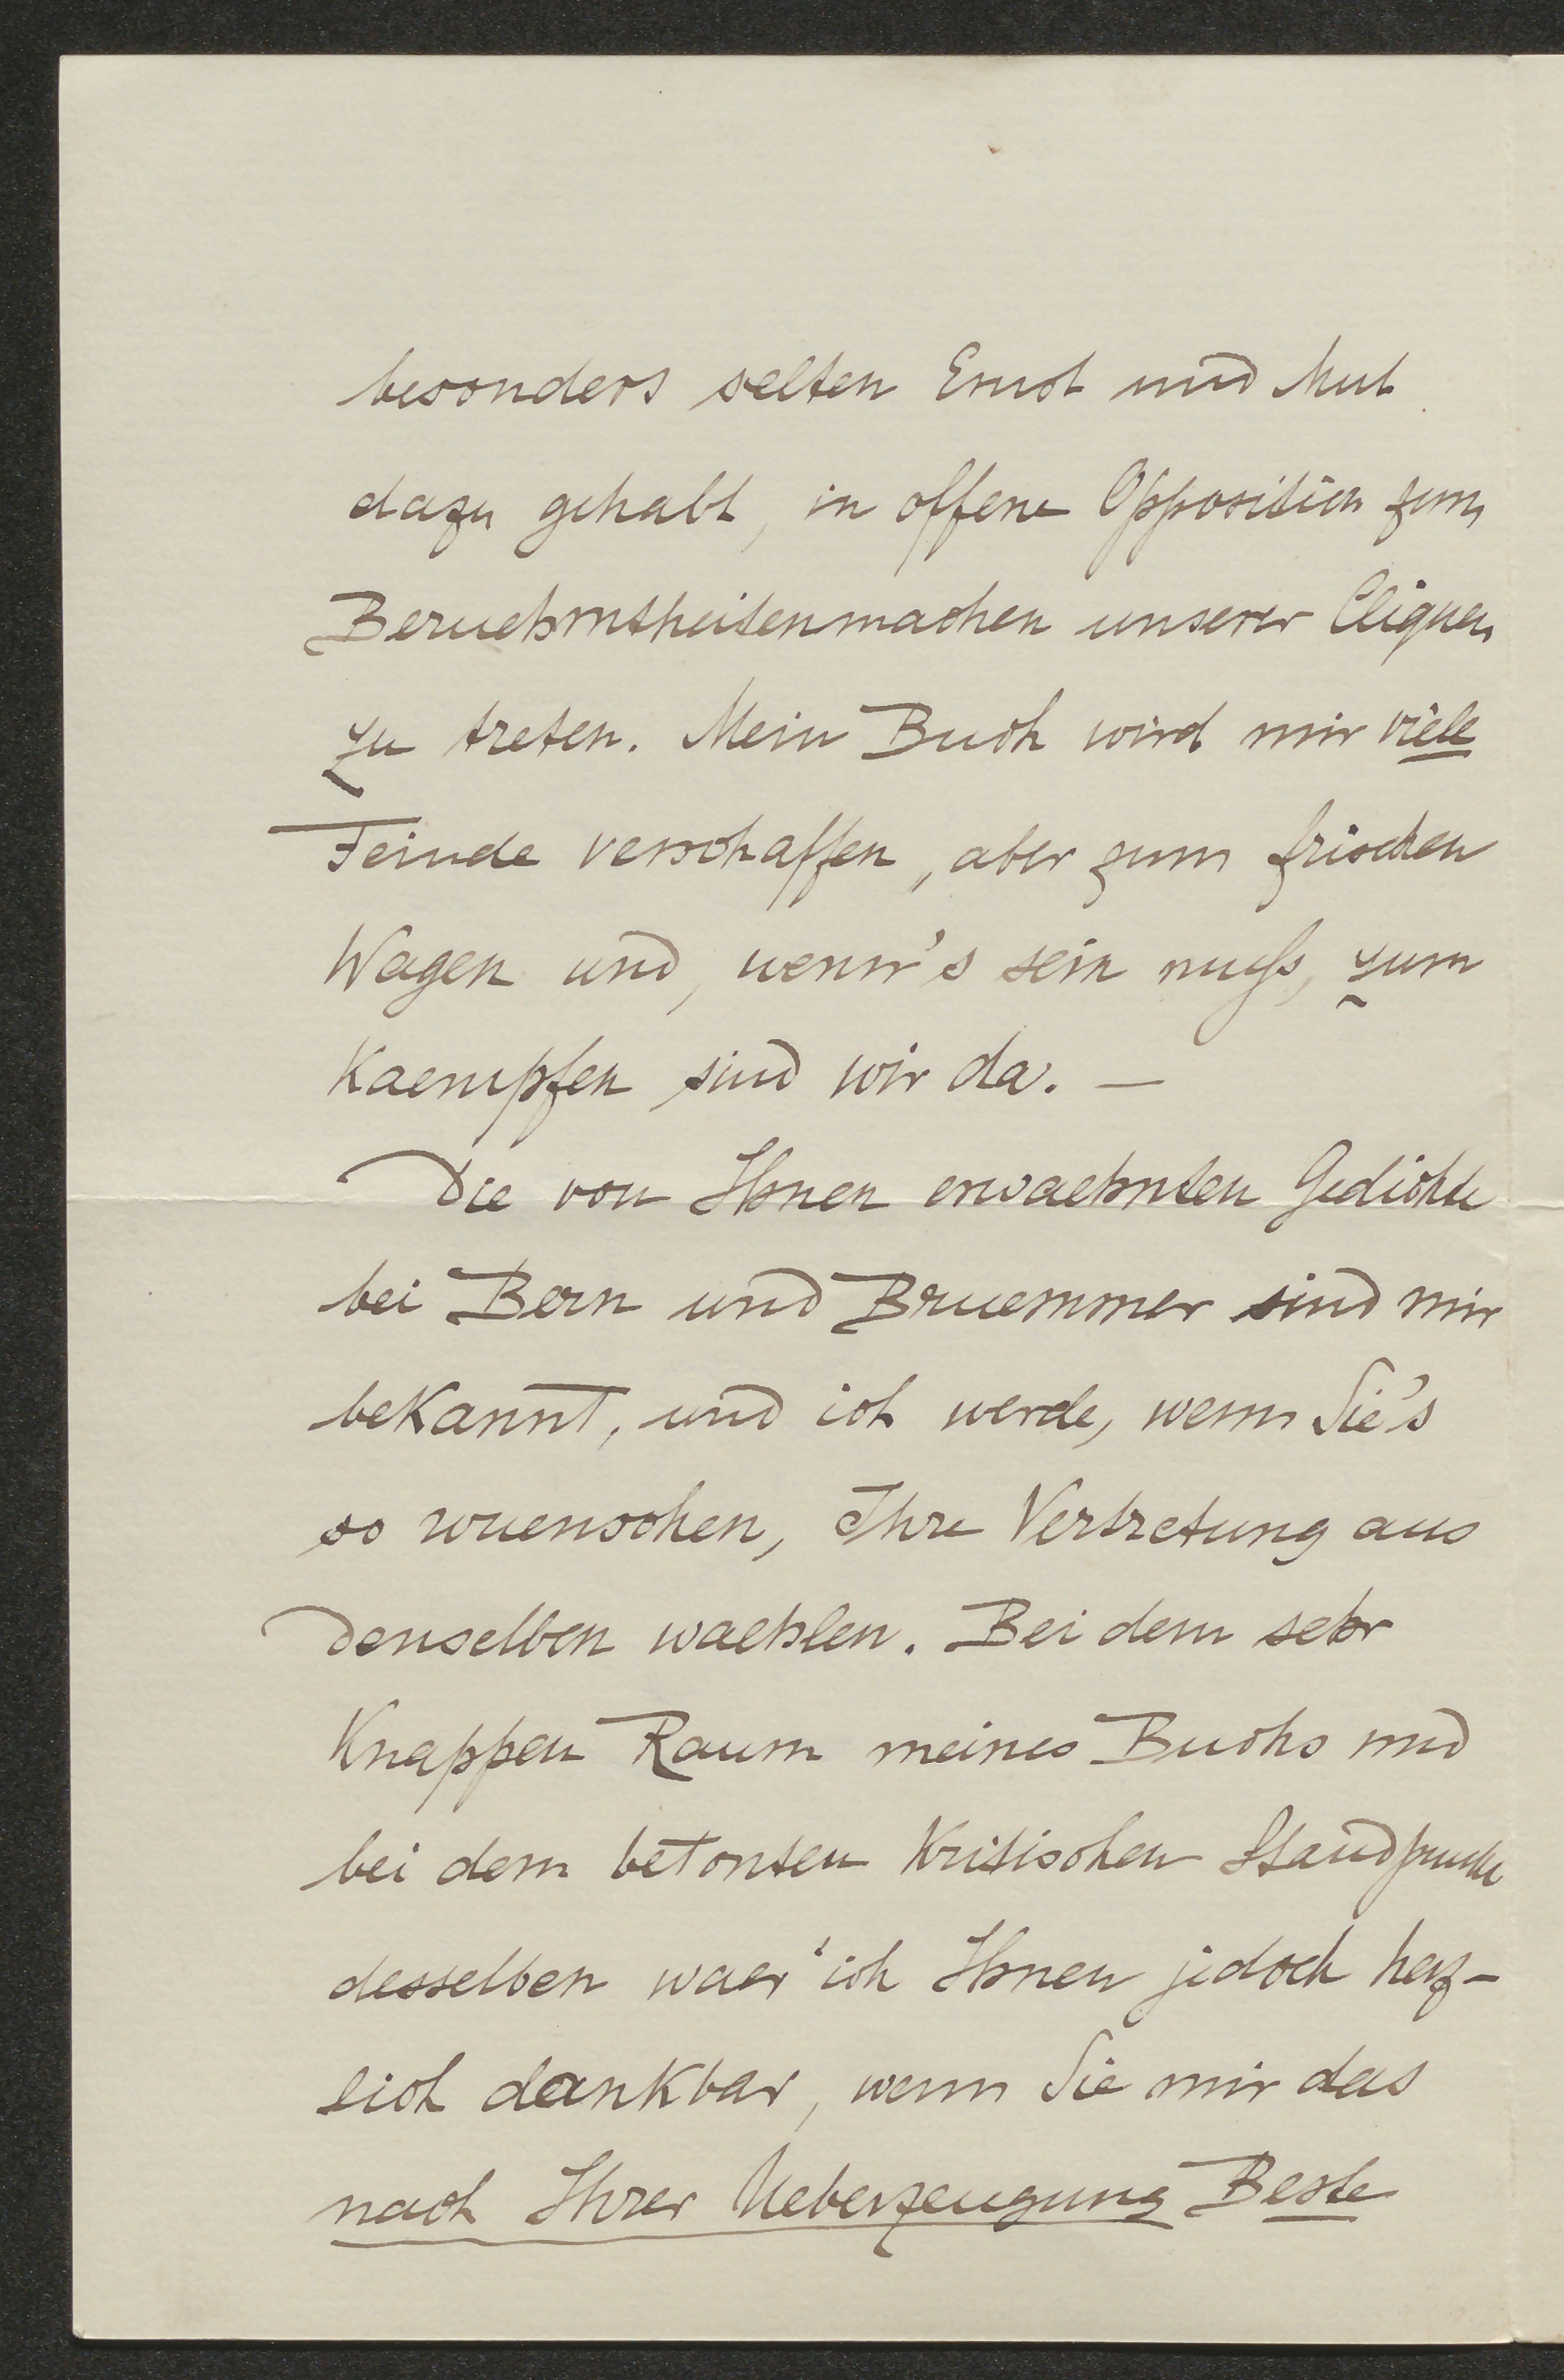 besonders selten Ernst und Mut
dazu gehabt, in offene Opposition zum
Beruehmtheitenmachen unserer Cliquen
zu treten. Mein Buch wird mir viele
Feinde verschaffen, aber zum frischen
Wagen und, wenn's sein muß, zum
Kaempfen sind wir da. —
Die von Ihnen erwaehnten Gedichte
bei Bern und Bruemmer sind mir
bekannt, und ich werde, wenn Sie's
so wuenschen, Ihre Vertretung aus
denselben waehlen. Bei dem sehr
Knappen Raum meines Buchs und
bei dem betonten Kritischen Standpunkte
desselben waer' ich Ihnen jedoch herz-
lich dankbar, wenn Sie mir das
nach Ihrer Ueberzeugung Beste